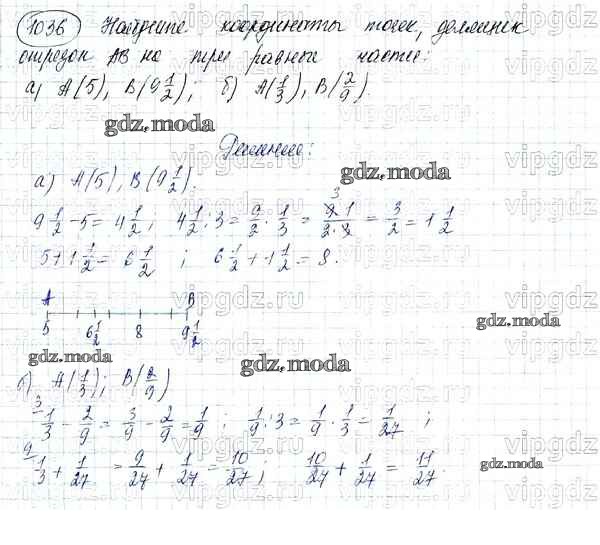 1036 Найдите координаты точек, делящих
отрезок AB на три равные части:
а) A(5), B(9 1/2); б) A(1/3), B(2/9).
gdz.moda
Решение:
gdz.moda
а) A(5), B(9 1/2).
9 1/2 - 5 = 4 1/2; 4 1/2 : 3 = 9/2 · 1/3 = 9·1/2·3 = 3/2 = 1 1/2
5 + 1 1/2 = 6 1/2 ; 6 1/2 + 1 1/2 = 8.
A B
5 6 1/2 8 9 1/2
gdz.moda
gdz.moda
gdz.moda
б) A(1/3); B(2/9)
1/3 - 2/9 = 3/9 - 2/9 = 1/9 ; 1/9 : 3 = 1/9 · 1/3 = 1/27 ;
1/3 + 1/27 = 9/27 + 1/27 = 10/27 ; 10/27 + 1/27 = 11/27.
gdz.moda
vipgdz.ru